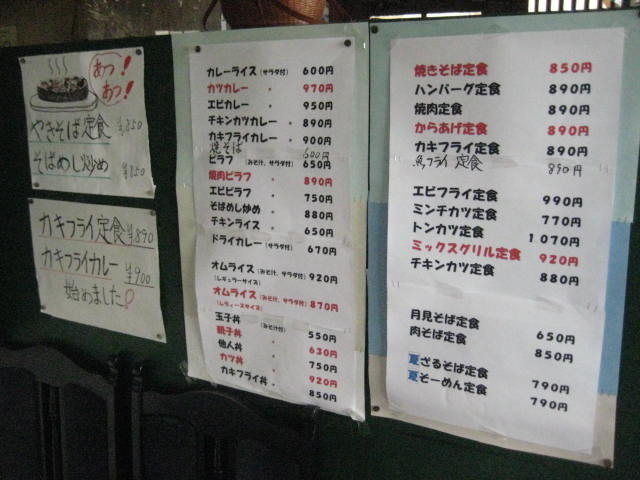 あつ!
あつ!
やきそば定食 ¥850
そばめし炒め ¥850
カキフライ定食 ¥890
カキフライカレー ¥900
始めました!
カレーライス(サラダ付) 600円
カツカレー 〃 970円
エビカレー 〃 950円
チキンカツカレー 〃 890円
カキフライカレー 〃 900円
焼そば 600円
ピラフ (みそ汁、サラダ付) 650円
焼肉ピラフ 〃 890円
エビピラフ 〃 750円
そばめし炒め 〃 880円
チキンライス 〃 650円
ドライカレー(サラダ付) 670円
オムライス(みそ汁、サラダ付) 920円
(レギュラーサイズ)
オムライス(みそ汁、サラダ付) 870円
(レディースサイズ)
玉子丼 (みそ汁付) 550円
親子丼 〃 630円
他人丼 〃 750円
カツ丼 〃 920円
カキフライ丼 〃 850円
焼きそば定食 850円
ハンバーグ定食 890円
焼肉定食 890円
からあげ定食 890円
カキフライ定食 890円
魚フライ定食 890円
エビフライ定食 990円
ミンチカツ定食 770円
トンカツ定食 1070円
ミックスグリル定食 920円
チキンカツ定食 880円
月見そば定食 650円
肉そば定食 850円
夏ざるそば定食 790円
夏そーめん定食 790円